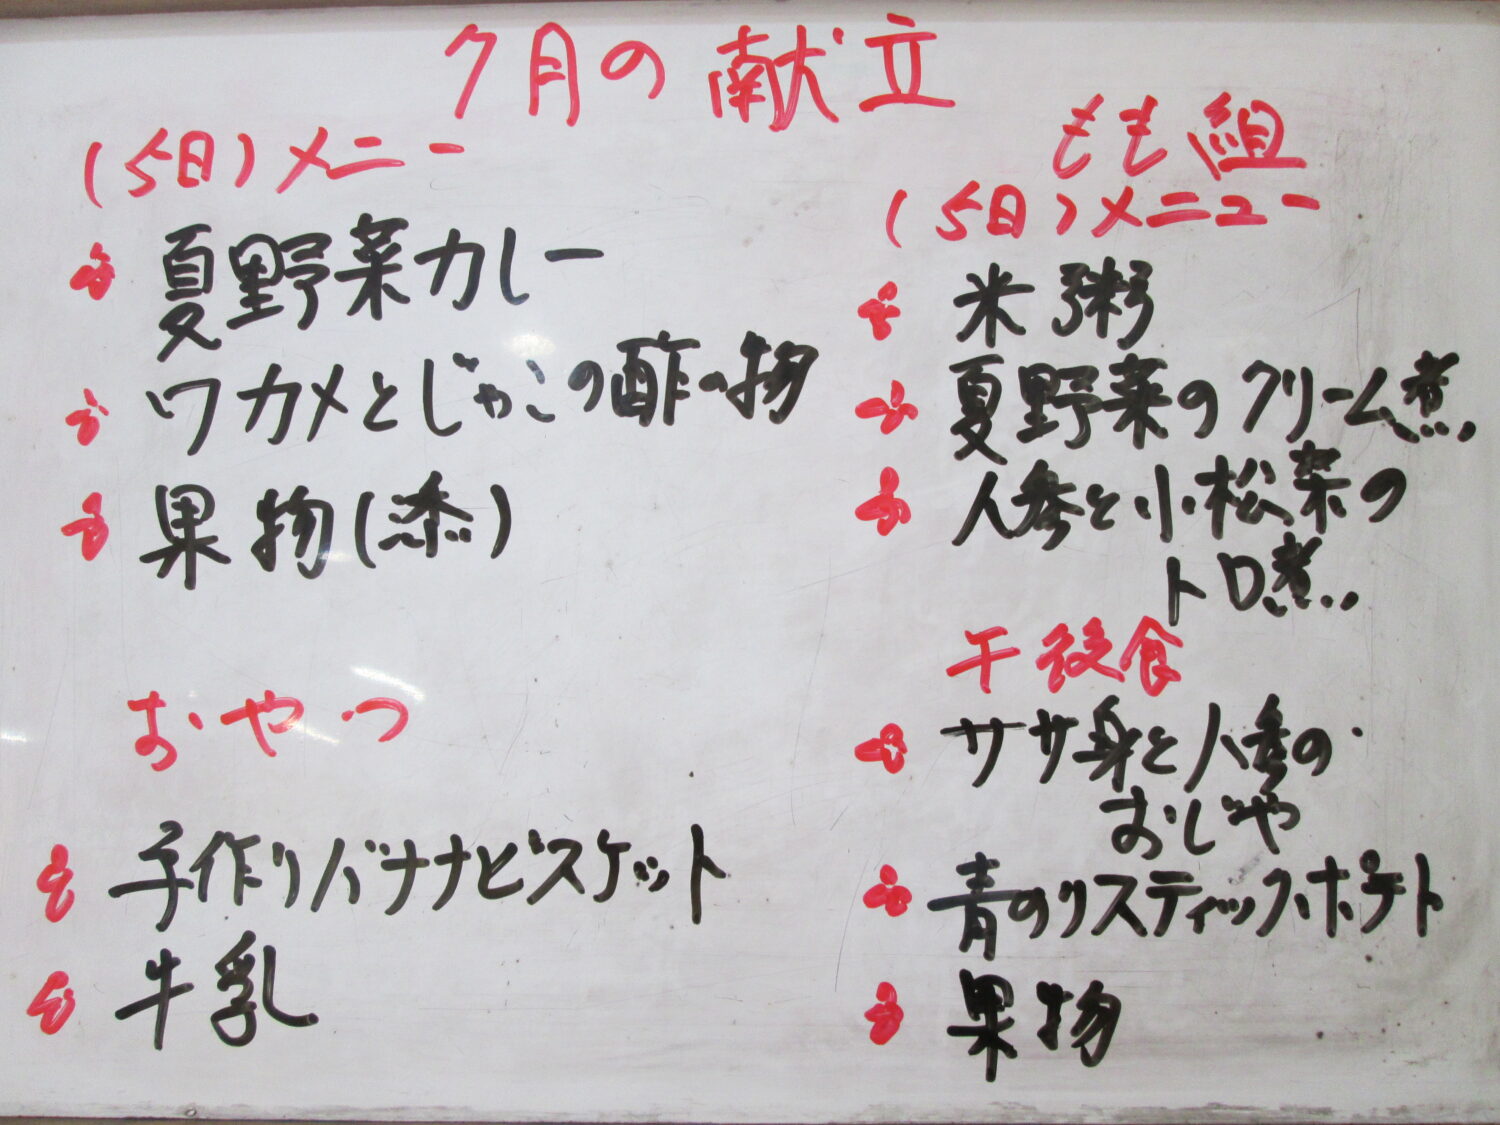 7月の献立
(5日)メニー
夏野菜カレー
ワカメとじゃこの酢の物
果物
おやつ
手作りバナナビスケット
牛乳
もも組
(5日)メニュー
米粥
夏野菜のクリーム煮
人参と小松菜の
トロ煮
午後食
ササ身と人参の
おじや
青のりスティックポテト
果物